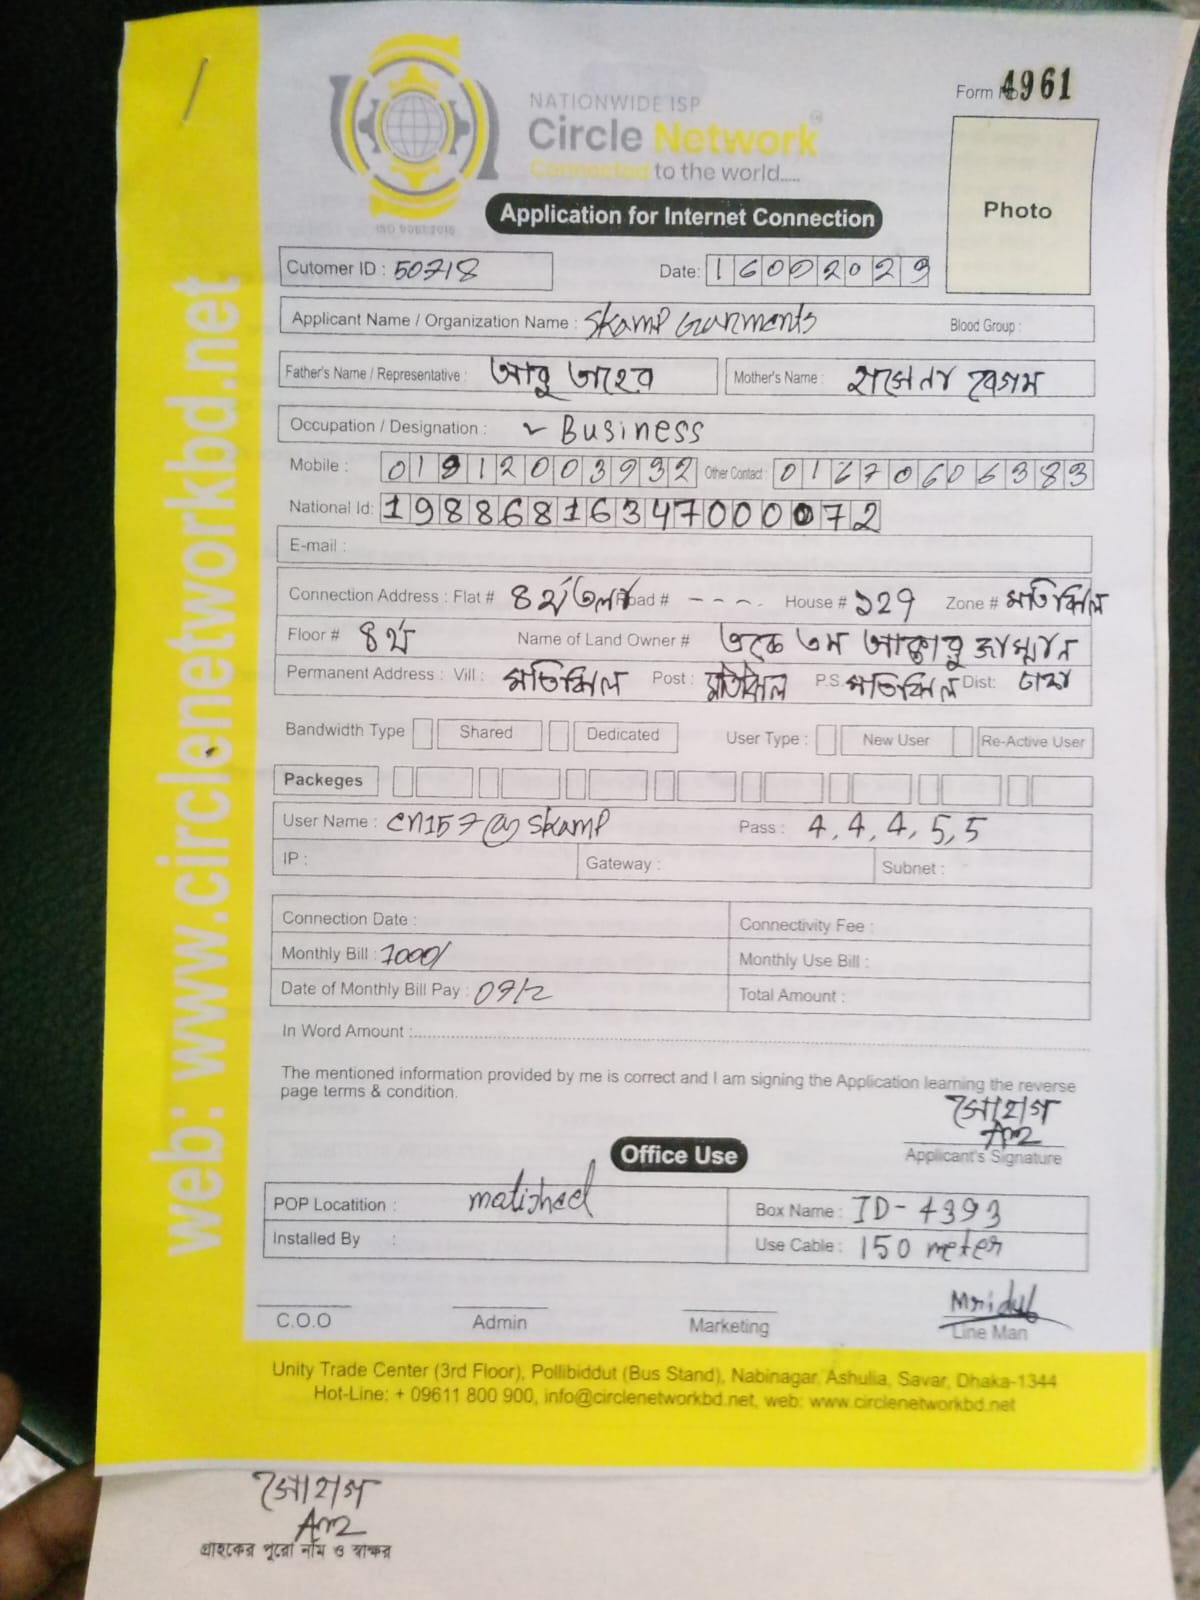 Form No 4961
NATIONWIDE ISP
Circle Network
Connected to the world.....
ISO 9001:2015
Application for Internet Connection
Photo
Cutomer ID : 50718
Date: 16092023
Applicant Name / Organization Name : Skamp Garments
Blood Group :
Father's Name / Representative : আবু তাহের
Mother's Name : হাসেনা বেগম
Occupation / Designation : Business
Mobile : 01912003932 Other Contact : 01670606383
National Id: 19886816347000072
E-mail :
Connection Address : Flat # ৪র্থ তলা Road # ---- House # ১২৭ Zone # মতিঝিল
Floor # ৪র্থ Name of Land Owner # একে এম
Permanent Address : Vill : মতিঝিল Post : মতিঝিল P.S. মতিঝিল Dist: ঢাকা
Bandwidth Type Shared Dedicated User Type : New User Re-Active User
Packeges
User Name : cn157@skamp Pass : 4,4,4,5,5
IP : Gateway : Subnet :
Connection Date : Connectivity Fee :
Monthly Bill : 1000/ Monthly Use Bill :
Date of Monthly Bill Pay : Total Amount :
In Word Amount :
The mentioned information provided by me is correct and I am signing the Application learning the reverse
page terms & condition.
সোহাগ
Applicant's Signature
Office Use
POP Locatition : matijheel Box Name : ID-4393
Installed By : Use Cable : 150 meter
Mridul
C.O.O Admin Marketing Line Man
Unity Trade Center (3rd Floor), Pollibiddut (Bus Stand), Nabinagar, Ashulia, Savar, Dhaka-1344
Hot-Line: + 09611 800 900, info@circlenetworkbd.net, web: www.circlenetworkbd.net
web: www.circlenetworkbd.net
সোহাগ
গ্রাহকের পুরো নাম ও স্বাক্ষর